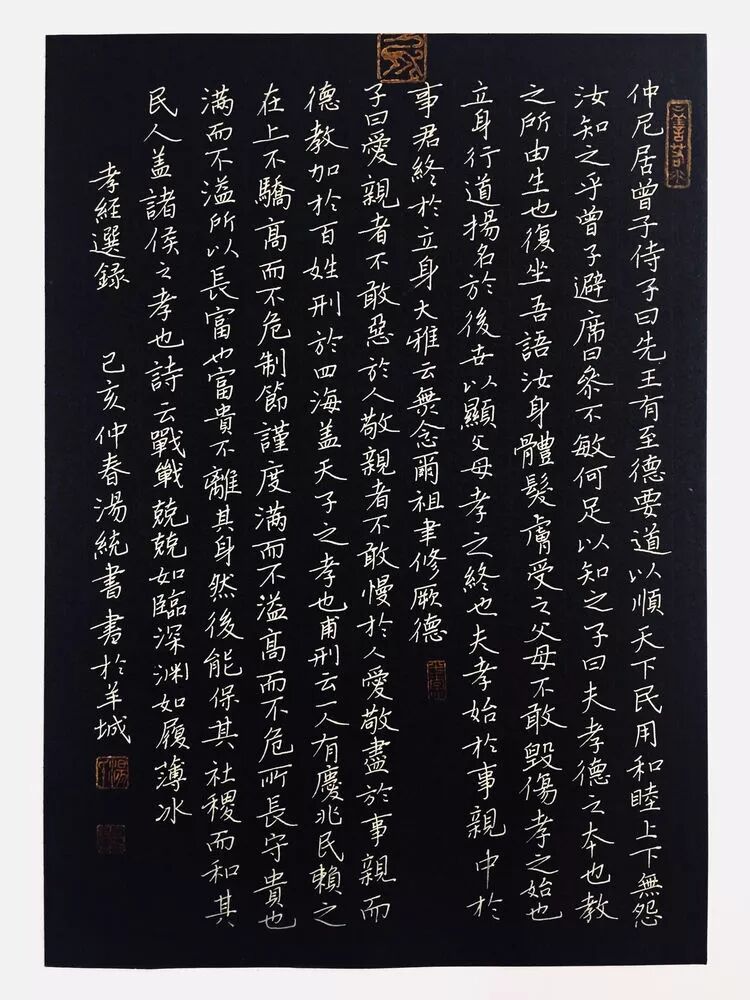 仲尼居曾子侍子曰先王有至德要道以順天下民用和睦上下無怨
汝知之乎曾子避席曰參不敏何足以知之子曰夫孝德之本也教
之所由生也復坐吾語汝身體髮膚受之父母不敢毀傷孝之始也
立身行道揚名於後世以顯父母孝之終也夫孝始於事親中於
事君終於立身大雅云無念爾祖聿修厥德
子曰愛親者不敢惡於人敬親者不敢慢於人愛敬盡於事親而
德教加於百姓刑於四海盖天子之孝也甫刑云一人有慶兆民賴之
在上不驕高而不危制節謹度滿而不溢高而不危所長守貴也
滿而不溢所以長富也富貴不離其身然後能保其社稷而和其
民人盖諸侯之孝也詩云戰戰兢兢如臨深淵如履薄冰
孝經選録 己亥仲春湯統書書於羊城